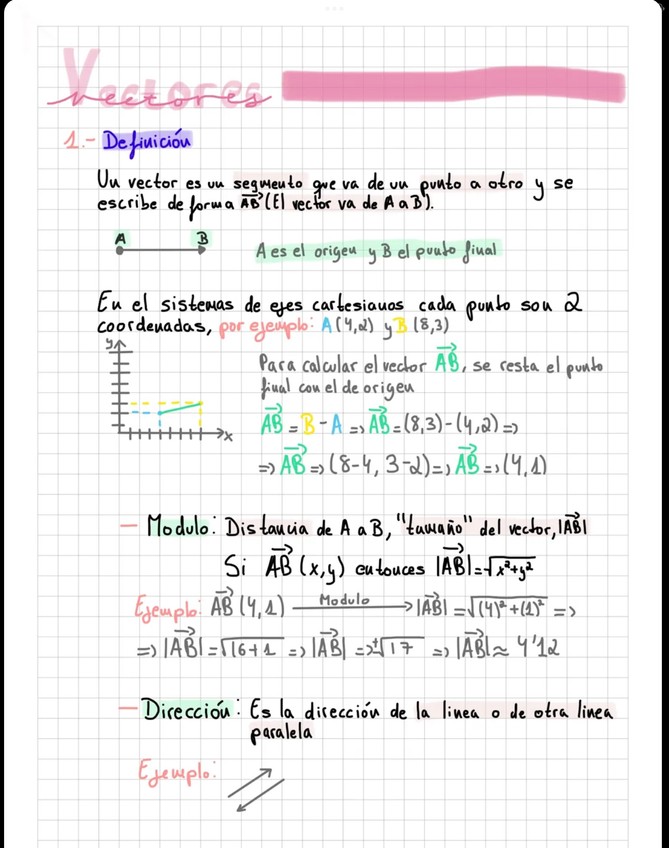 Vectores
vectores
1.- Definición
Un vector es un segmento que va de un punto a otro y se
escribe de forma AB⃗ (El vector va de A a B).
A B
A es el origen y B el punto final
En el sistemas de ejes cartesianos cada punto son 2
coordenadas, por ejemplo: A(4,2) y B(8,3)
y
x
Para calcular el vector AB⃗, se resta el punto
final con el de origen
AB⃗ = B - A => AB⃗ = (8,3)-(4,2) =>
=> AB⃗ => (8-4, 3-2) => AB⃗ => (4,1)
— Modulo: Distancia de A a B, "tamaño" del vector, |AB⃗|
Si AB⃗ (x,y) entonces |AB⃗| = √x²+y²
Ejemplo: AB⃗ (4,1) Modulo → |AB⃗| = √(4)²+(1)² =>
=> |AB⃗| = √16+1 => |AB⃗| => ±√17 => |AB⃗| ≈ 4'12
— Dirección: Es la dirección de la linea o de otra linea
paralela
Ejemplo: